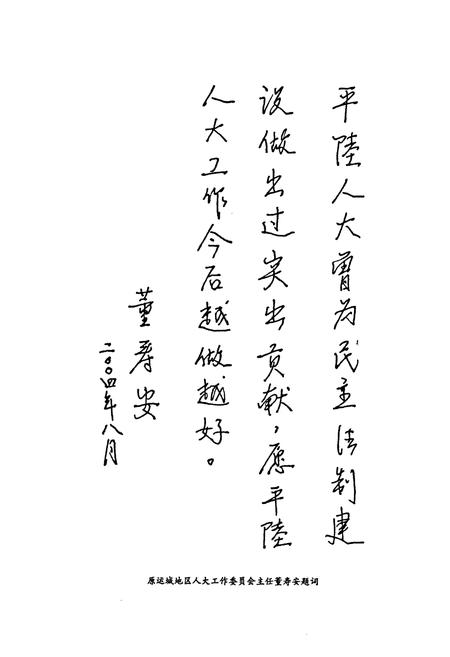 平陸人大曾为民主法制建
设做出过突出贡献，愿平陸
人大工作今后越做越好。
董寿安
二〇〇四年八月
原运城地区人大工作委员会主任董寿安题词